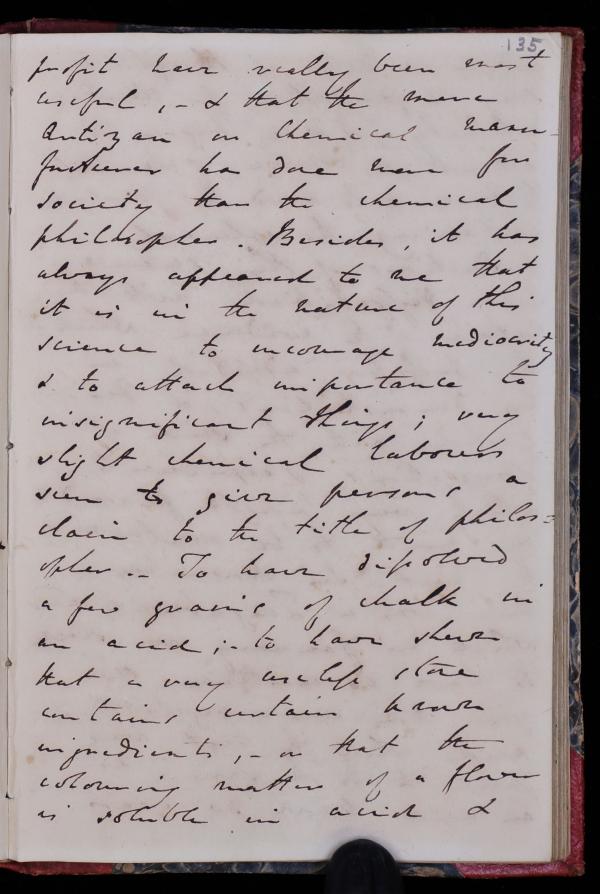 135
profit have really been most
useful, - & that the mere
Artizan or Chemical manu-
facturer has done more for
society than the chemical
philosopher. Besides, it has
always appeared to me that
it is in the nature of this
science to encourage mediocrity
& to attach importance to
insignificant things; very
slight chemical labours
seem to give persons a
claim to the title of philos=
opher -- To have dissolved
a few grains of chalk in
an acid; - to have shewn
that a very useless stone
contains certain known
ingredients, - or that the
colouring matter of a flower
is soluble in acid &